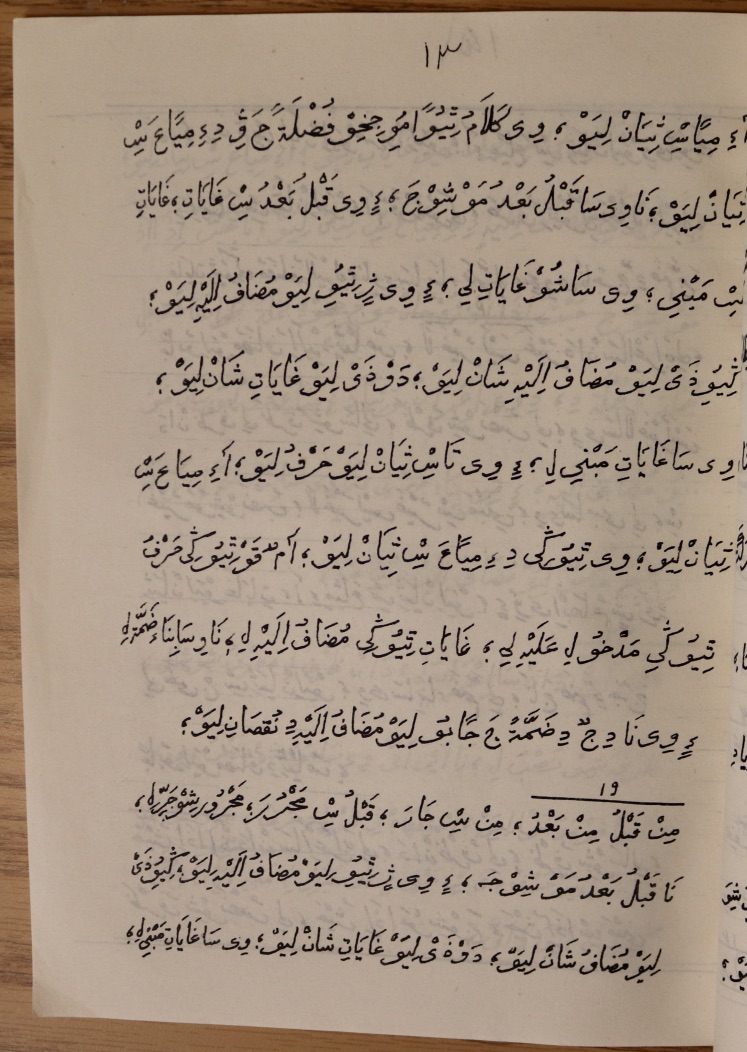 ١٣
أءِ مِيَّاشِ ثِيَانْ لِيَوْ ؛ وِى كَلَامُ تِيُوَّا مُوِ جِخِوْ فُضْلَةً جَ قِ دِءِ مِيَّاعَ سِْ
ثِيَانْ لِيَوْ ؛ نَاوِى سَا قَبْلُ بَعْدُ مَوْ شِوْ جَ ؛ ءِ وِى قَبْلُ بَعْدُ سِْ غَايَاتِ ؛ غَايَاتِ
سِْ مَبْنِي ؛ وِى سَا شُوْ غَايَاتِ لِي ؛ ءِ وِى ژِرِتِيُوِ لِيَوْ مُضَافُ اِلَيْهِ لِيَوْ ؛
ڭِيُوِ ذَىْ لِيَوْ مُضَافُ اِلَيْهِ شَانْ لِيَوْ ؛ دَوْ ذَىْ لِيَوْ غَايَاتِ شَانْ لِيَوْ ؛
وِى سَا غَايَاتِ مَبْنِي لِ ؛ ءِ وِى تَاسِْ ثِيَانْ لِيَوْ حَرْفُ لِيَوْ ؛ أءِ مِيَاعَ سِْ
ثِيَانْ لِيَوْ ؛ وِى تِيُوْ ڭِى دِءِ مِيَّاعَ سِْ ثِيَانْ لِيَوْ ؛ اَمْ قَوْ تِيُوْ ڭِى حَرْفُ
تِيُوْ ڭِي مَدْخُولِ عَلَيْهِ لِي ؛ غَايَاتِ تِيُوْ ڭِي مُضَافُ اِلَيْهِ لِ ؛ نَاوِ سَا بِنَاءِ ضَمَّةْ لِ
ءِ وِى نَا دِجٌ دِ ضَمَّةْ جَ جًا بُوْ لِيَوْ مُضَافُ اِلَيْهِ دِ نُقصَانِ لِيَوْ ؛
١٩
مِنْ قَبْلُ مِنْ بَعْدُ ؛ مِنْ سِْ جَارَ ؛ قَبْلُ سِْ مَجْرُرَ ؛ مَجْرُورِ شِوْ جَرِّلِ ؛
نَا قَبْلُ بَعْدُ مَوْ شِوْ جَ ؛ ءِ وِى ژِرِتِيُوِ لِيَوْ مُضَافُ اِلَيْهِ لِيَوْ ؛ ڭِيُوِ ذَىْ
لِيَوْ مُضَافُ شَانْ لِيَوْ ؛ دَوْ ذَىْ لِيَوْ غَايَاتِ شَانْ لِيَوْ ؛ وِى سَا غَايَاتِ مَبْنِي لِ ؛